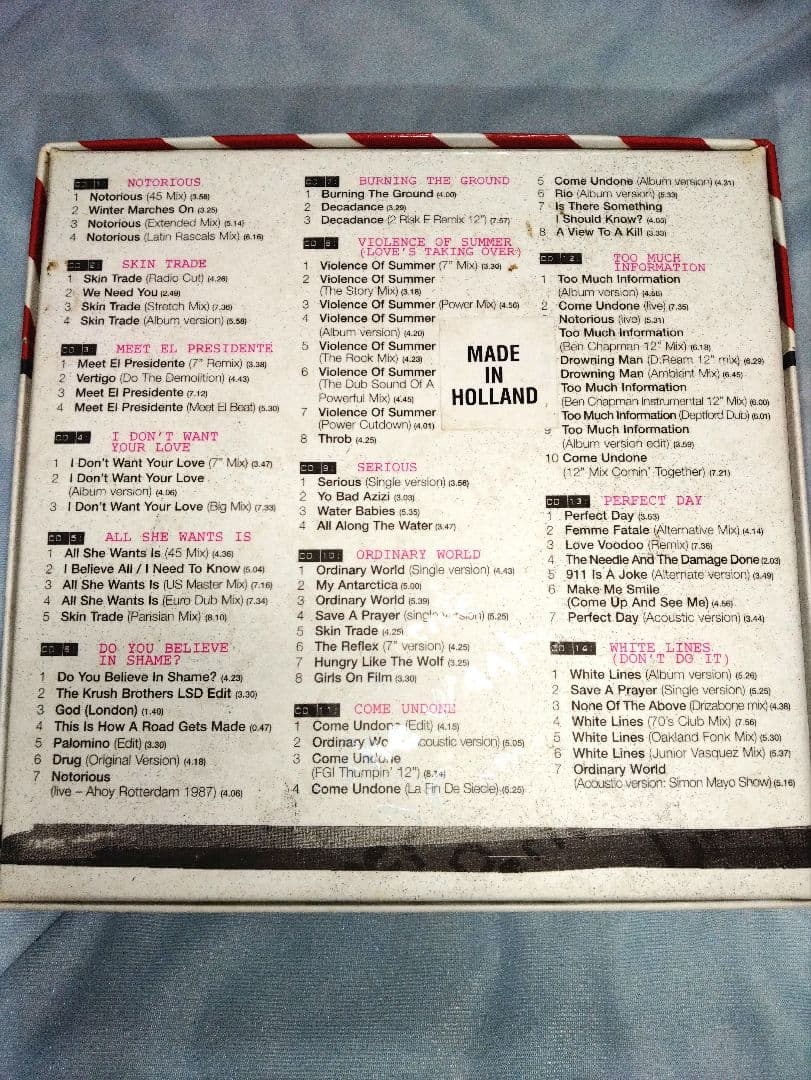 CD 1: NOTORIOUS
1 Notorious (45 Mix) (3.58)
2 Winter Marches On (3.25)
3 Notorious (Extended Mix) (5.14)
4 Notorious (Latin Rascals Mix) (6.16)
CD 2: SKIN TRADE
1 Skin Trade (Radio Cut) (4.26)
2 We Need You (2.49)
3 Skin Trade (Stretch Mix) (7.36)
4 Skin Trade (Album version) (5.58)
CD 3: MEET EL PRESIDENTE
1 Meet El Presidente (7" Remix) (3.38)
2 Vertigo (Do The Demolition) (4.43)
3 Meet El Presidente (7.12)
4 Meet El Presidente (Meet El Beat) (5.30)
CD 4: I DON'T WANT
YOUR LOVE
1 I Don't Want Your Love (7" Mix) (3.47)
2 I Don't Want Your Love
(Album version) (4.06)
3 I Don't Want Your Love (Big Mix) (7.33)
CD 5: ALL SHE WANTS IS
1 All She Wants Is (45 Mix) (4.36)
2 I Believe All / I Need To Know (5.04)
3 All She Wants Is (US Master Mix) (7.16)
4 All She Wants Is (Euro Dub Mix) (7.34)
5 Skin Trade (Parisian Mix) (8.10)
CD 6: DO YOU BELIEVE
IN SHAME?
1 Do You Believe In Shame? (4.23)
2 The Krush Brothers LSD Edit (3.30)
3 God (London) (1.40)
4 This Is How A Road Gets Made (0.47)
5 Palomino (Edit) (3.30)
6 Drug (Original Version) (4.18)
7 Notorious
(live – Ahoy Rotterdam 1987) (4.06)
CD 7: BURNING THE GROUND
1 Burning The Ground (4.00)
2 Decadance (3.29)
3 Decadance (2 Risk E Remix 12") (7.57)
CD 8: VIOLENCE OF SUMMER
(LOVE'S TAKING OVER)
1 Violence Of Summer (7" Mix) (3.30)
2 Violence Of Summer
(The Story Mix) (3.18)
3 Violence Of Summer (Power Mix) (4.56)
4 Violence Of Summer
(Album version) (4.20)
5 Violence Of Summer
(The Rock Mix) (4.23)
6 Violence Of Summer
(The Dub Sound Of A
Powerful Mix) (4.45)
7 Violence Of Summer
(Power Cutdown) (4.01)
8 Throb (4.25)
MADE
IN
HOLLAND
CD 9: SERIOUS
1 Serious (Single version) (3.56)
2 Yo Bad Azizi (3.03)
3 Water Babies (5.35)
4 All Along The Water (3.47)
CD 10: ORDINARY WORLD
1 Ordinary World (Single version) (4.43)
2 My Antarctica (5.00)
3 Ordinary World (5.39)
4 Save A Prayer (single version) (5.25)
5 Skin Trade (4.25)
6 The Reflex (7" version) (4.25)
7 Hungry Like The Wolf (3.25)
8 Girls On Film (3.30)
CD 11: COME UNDONE
1 Come Undone (Edit) (4.15)
2 Ordinary Wo coustic version) (5.05)
3 Come Undone
(FGI Thumpin' 12") (8.14)
4 Come Undone (La Fin De Siecle) (5.25)
5 Come Undone (Album version) (4.31)
6 Rio (Album version) (5.33)
7 Is There Something
I Should Know? (4.03)
8 A View To A Kill (3.33)
CD 12: TOO MUCH
INFORMATION
1 Too Much Information
(Album version) (4.56)
2 Come Undone (live) (7.35)
Notorious (live) (5.31)
Too Much Information
(Ben Chapman 12" Mix) (6.18)
Drowning Man (D:Ream 12" mix) (6.29)
Drowning Man (Ambient Mix) (6.45)
Too Much Information
(Ben Chapman Instrumental 12" Mix) (6.00)
Too Much Information (Deptford Dub) (6.01)
9 Too Much Information
(Album version edit) (3.59)
10 Come Undone
(12" Mix Comin' Together) (7.21)
CD 13: PERFECT DAY
1 Perfect Day (3.53)
2 Femme Fatale (Alternative Mix) (4.14)
3 Love Voodoo (Remix) (7.36)
4 The Needle And The Damage Done (2.03)
5 911 Is A Joke (Alternate version) (3.49)
6 Make Me Smile
(Come Up And See Me) (4.56)
7 Perfect Day (Acoustic version) (3.44)
CD 14: WHITE LINES
(DON'T DO IT)
1 White Lines (Album version) (5.26)
2 Save A Prayer (Single version) (5.25)
3 None Of The Above (Drizabone mix) (4.36)
4 White Lines (70's Club Mix) (7.56)
5 White Lines (Oakland Fonk Mix) (5.30)
6 White Lines (Junior Vasquez Mix) (5.37)
7 Ordinary World
(Acoustic version: Simon Mayo Show) (5.16)